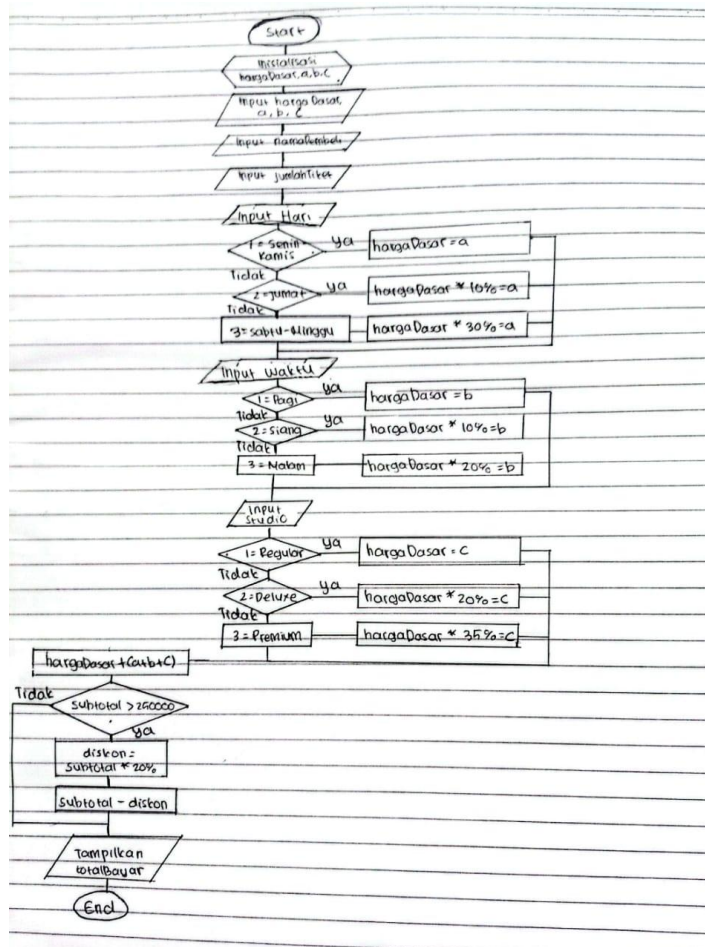 Start
Inisialisasi
hargaDasar, a, b, c
Input hargaDasar,
a, b, c
Input namaPembeli
Input jumlahTiket
Input Hari
1 = Senin-
Kamis
ya
hargaDasar = a
Tidak
2 = Jumat
ya
hargaDasar * 10% = a
Tidak
3 = Sabtu - Minggu
hargaDasar * 30% = a
Input Waktu
1 = Pagi
ya
hargaDasar = b
Tidak
2 = Siang
ya
hargaDasar * 10% = b
Tidak
3 = Malam
hargaDasar * 20% = b
Input
Studio
1 = Regular
ya
hargaDasar = c
Tidak
2 = Deluxe
ya
hargaDasar * 20% = c
Tidak
3 = Premium
hargaDasar * 35% = c
hargaDasar + (a+b+c)
Tidak
Subtotal > 250000
ya
diskon =
Subtotal * 20%
Subtotal - diskon
Tampilkan
totalBayar
End